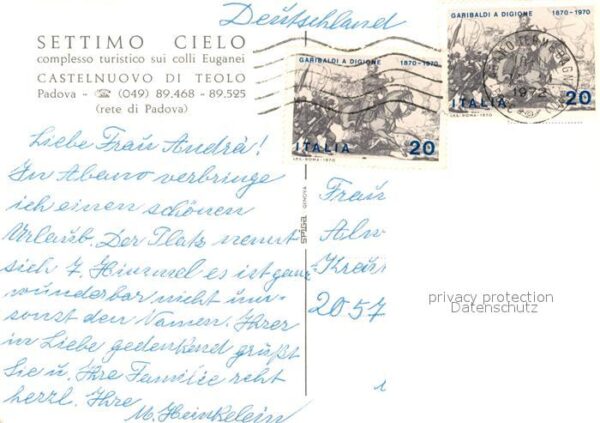 Deutschland
SETTIMO CIELO
complesso turistico sui colli Euganei
CASTELNUOVO DI TEOLO
Padova - ☎ (049) 89.468 - 89.525
(rete di Padova)
GARIBALDI A DIGIONE 1870-1970
ITALIA 20
I.P.S.-ROMA-1970
GARIBALDI A DIGIONE 1870-1970
1972
ITALIA 20
I.P.S.-ROMA-1970
Liebe Frau Andrä!
In Abano verbringe
ich einen schönen
Urlaub. Der Platz nennt
sich 7. Himmel es ist ganz
wunderbar nicht um-
sonst den Namen. Ihrer
in Liebe gedenkend grüßt
Sie u. Ihre Familie recht
herzl. Ihre
M. Heinkelein
GENOVA
Frau
Alw
2057
privacy protection
Datenschutz